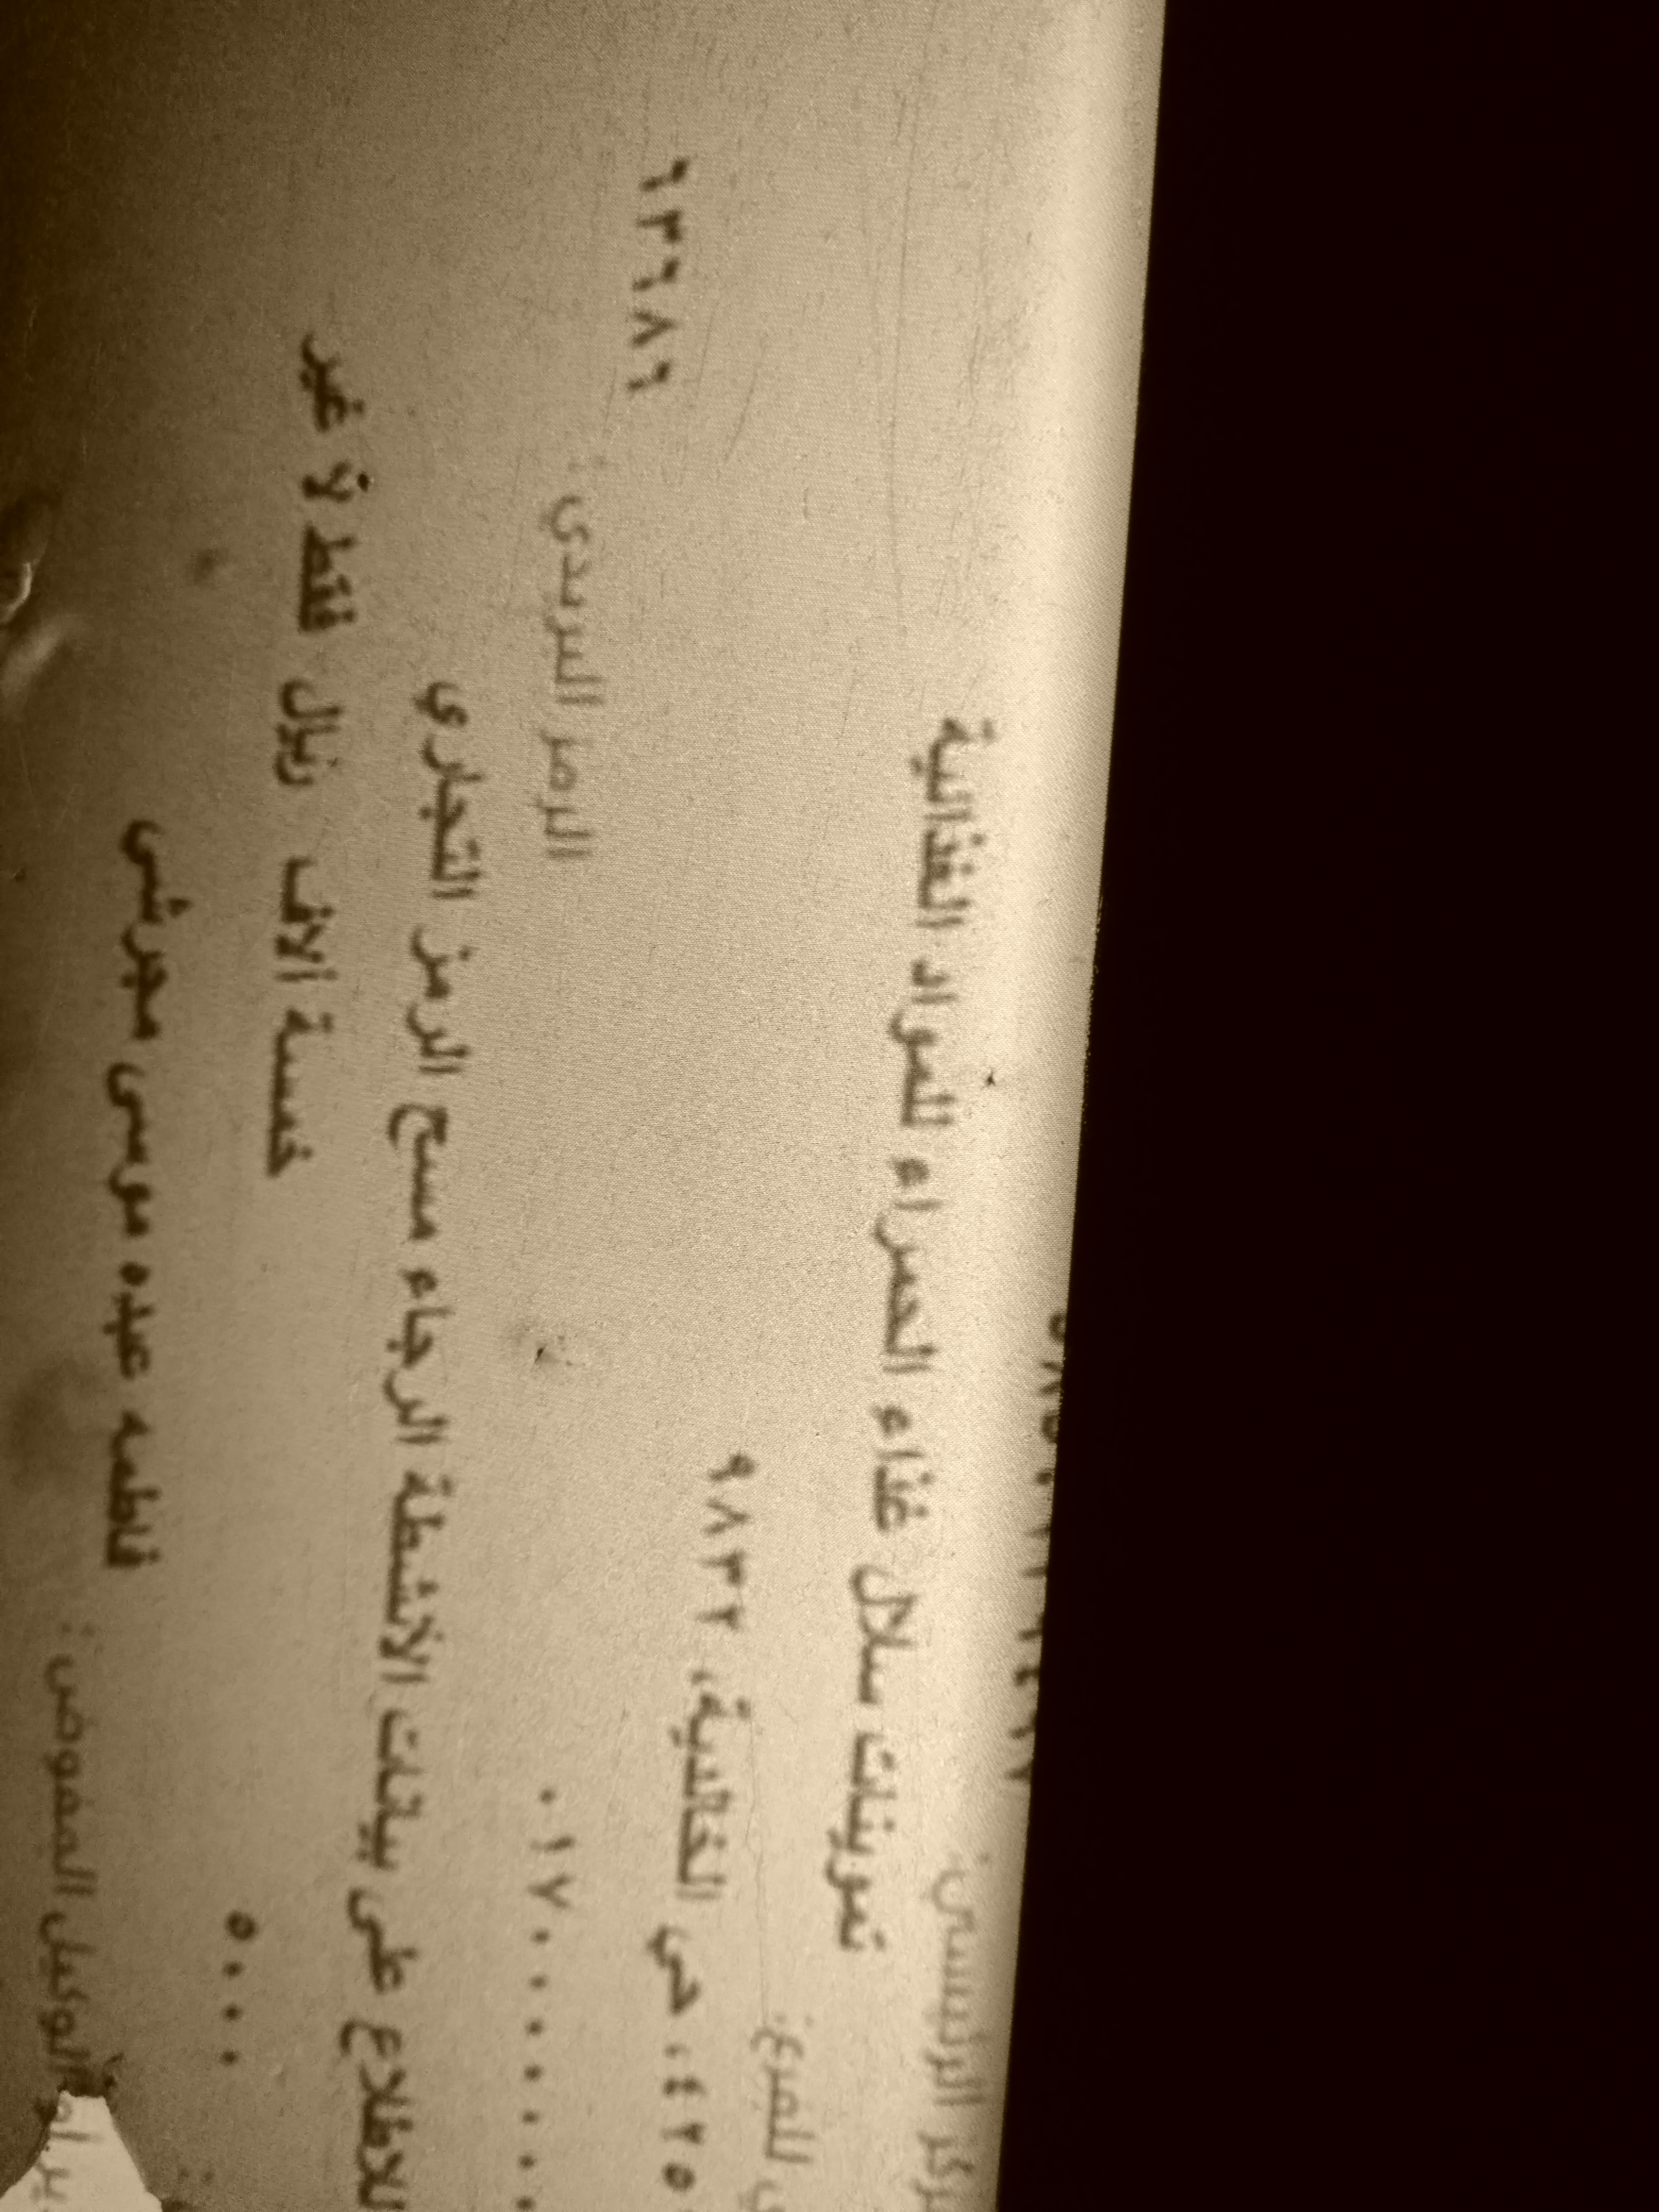 الرئيسي:
تموينات سلال غذاء الحمراء للمواد الغذائية
للفرع:
حي الخالدية، ٩٨٣٢
٦٣٦٨٦
الرمز البريدي:
٠١٧٠٠٠٠٠٠٠
للاطلاع على بيانات الأنشطة الرجاء مسح الرمز التجاري
٥٠٠٠ خمسة ألاف ريال فقط لا غير
فاطمه عبده موسى مجرشي
الوكيل المفوض: